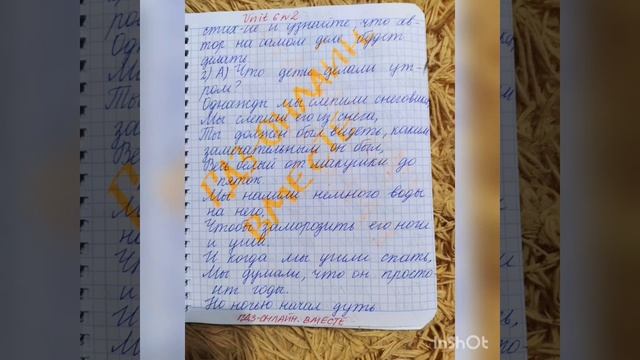 Unit 6 №2
стих-ие и узнайте, что ав-
тор на самом деле будет
делать
2) А) Что дети делали ут-
ром?
Однажды мы слепили снеговика,
Мы слепили его из снега,
Ты должен был видеть, каким
замечательным он был,
Весь белый от макушки до
пяток
Мы налили немного воды
на него,
Чтобы заморозить его ноги
и уши.
И когда мы ушли спать,
Мы думали, что он просто
годы.
Но ночью начал дуть
ГДЗ-ОНЛАЙН. ВМЕСТЕ
ГДЗ ОНЛАЙН
ВМЕСТЕ
InShOt